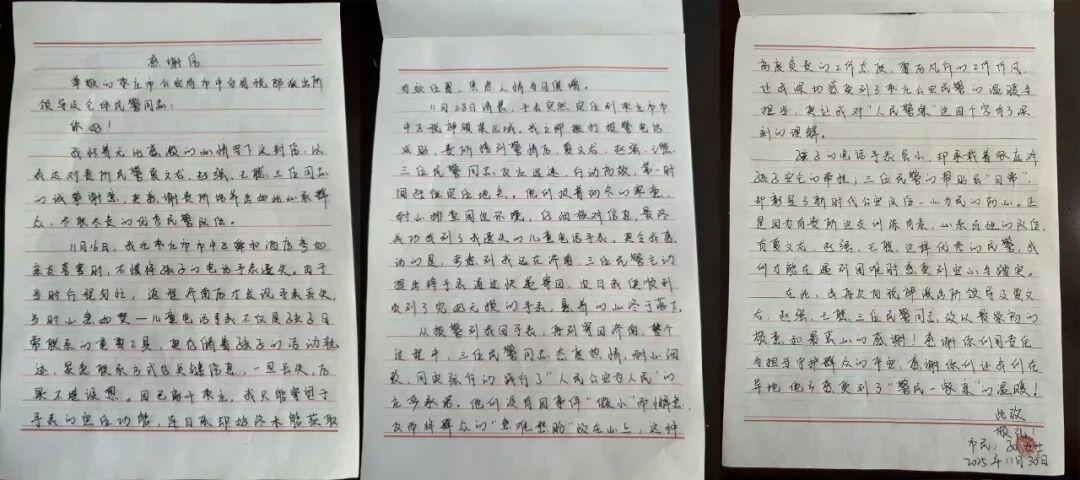 感谢信
尊敬的枣庄市公安局市中分局税郭派出所
领导及全体民警同志：
你好！
我怀着无比感激的心情写下这封信，以
表达对贵所民警夏文龙、赵强、王聪三位同志
的诚挚谢意，更感谢贵所培养出如此心系群
众、尽职尽责的优秀民警队伍。
11月15日，我在枣庄市市中区 酒店参加
亲友喜宴时，不慎将孩子的电话手表遗失。由于
当时行程匆忙，返程济南后才发现手表丢失，
当时心急如焚—儿童电话手表不仅是孩子日
常联系的重要工具，更存储着孩子的活动轨
迹、家庭联系方式等关键信息，一旦丢失，后
果不堪设想。因已离开枣庄，我只能寄望于
手表的定位功能，连日来却始终未能获取
有效位置，焦虑心情与日俱增。
11月28日清晨，手表突然定位到枣庄市市
中区税郭镇某区域。我立即拨打报警电话
求助，贵所接到警情后，夏文龙、赵强、王聪
三位民警同志反应迅速、行动高效，第一时
间赶往定位地点。他们顶着初冬的寒意，
耐心排查周边环境、仔细核对信息，最终
成功找到了我遗失的儿童电话手表。更令我感
动的是，考虑到我远在济南，三位民警主动
提出将手表通过快递寄回，次日我便顺利
收到了完好无损的手表，悬着的心终于落下。
从报警到找回手表，再到寄回济南，整个
过程中，三位民警同志态度热情、耐心细
致，用实际行动践行了“人民公安为人民”的
庄严承诺。他们没有因事件“微小”而懈怠，
反而将群众的“急难愁盼”放在心上，这种
高度负责的工作态度、雷厉风行的工作作风，
让我深切感受到了枣庄公安民警的温暖与
担当，更让我对“人民警察”这四个字有了深
刻的理解。
孩子的电话手表虽小，却承载着家庭对
孩子安全的牵挂；三位民警的帮助虽“日常”，
却彰显了新时代公安队伍一心为民的初心。正
是因为有贵所这支训练有素、心系百姓的队伍，
有夏文龙、赵强、王聪这样优秀的民警，我
们才能在遇到困难时感受到安心与踏实。
在此，我再次向税郭派出所领导及夏文
龙、赵强、王聪三位民警同志，致以最崇高的
敬意和最衷心的感谢！感谢你们用责任
与担当守护群众的平安，感谢你们让我们在
异地他乡感受到了“警民一家亲”的温暖！
此致
敬礼！
市民：孙 士
2025年11月30日